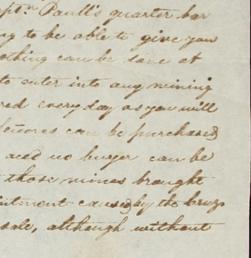 Capt. Paull's quarter bar
ng to be able to give you
othing can be done at
to enter into any mining
red every day as you will
can be purchased
and no buyer can be
those mines brought
intment caused by the
sale, although without